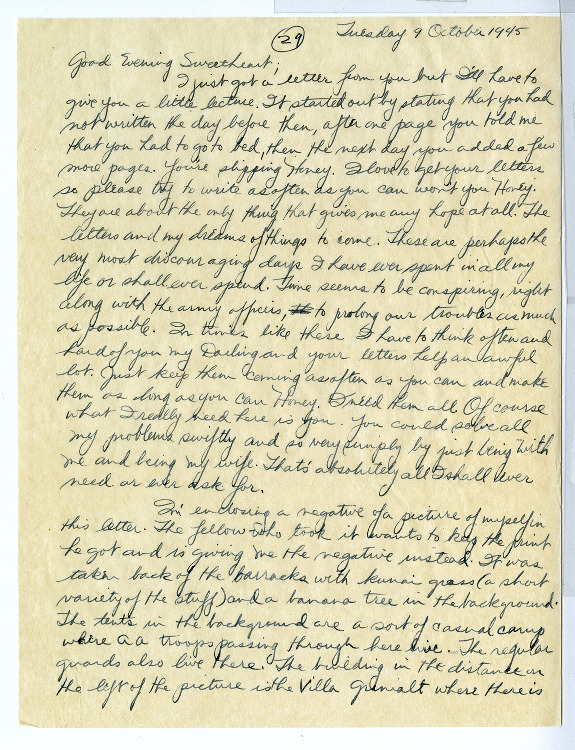 29
Tuesday 9 October 1945
Good Evening Sweetheart;
I just got a letter from you but I'll have to
give you a little lecture. It started out by stating that you had
not written the day before then, after one page you told me
that you had to go to bed, then the next day you added a few
more pages. You're slipping Honey. I love to get your letters
so please try to write as often as you can won't you Honey.
They are about the only thing that gives me any hope at all. The
letters and my dreams of things to come. These are perhaps the
very most discouraging days I have ever spent in all my
life or shall ever spend. Time seems to be conspiring, right
along with the army officers, to prolong our troubles as much
as possible. In times like these I have to think often and
hard of you my Darling and your letters help an awful
lot. Just keep them coming as often as you can and make
them as long as you can Honey. I need them all Of course
what I really need here is you. You could solve all
my problems swiftly and so very simply by just being with
me and being my wife. That's absolutely all I shall ever
need or ever ask for.
I'm enclosing a negative of a picture of myself in
this letter. The fellow who took it wants to keep the print
he got and is giving me the negative instead. It was
taken back of the barracks with kunai grass (a short
variety of the stuff) and a banana tree in the background.
The tents in the background are a sort of casual camp
where AA troops passing through here live. The regular
guards also live there. The building in the distance on
the left of the picture is the Villa where there is